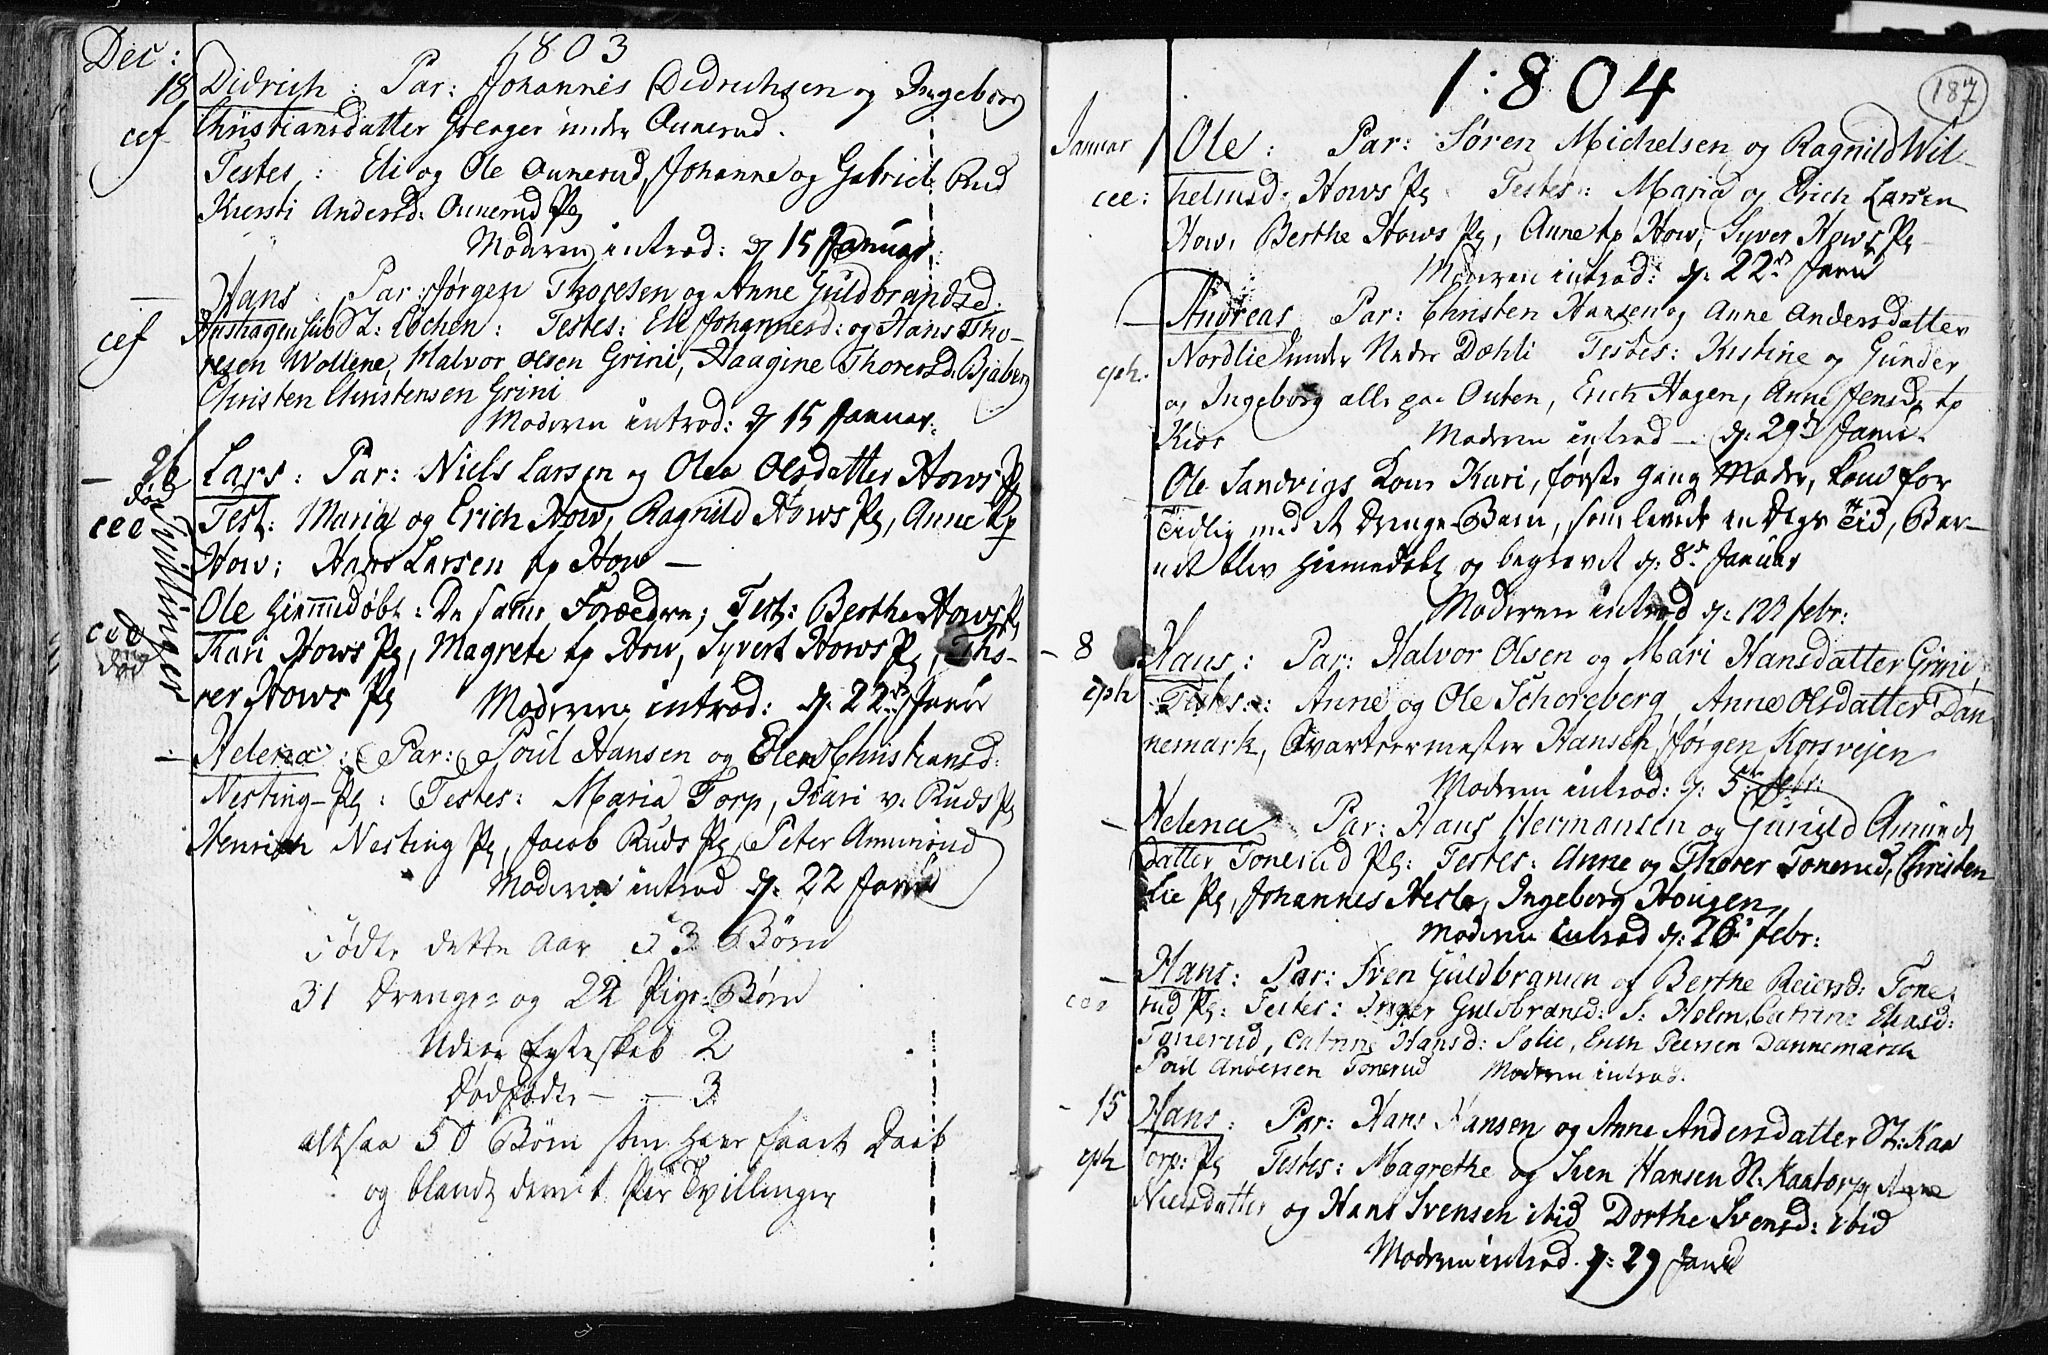 Dec: 1803
18 Didrich : Par: Johannes Didrichsen og Ingeborg
cef Christiansdatter Grenger under Ounerud.
Testes : Eli og Ole Ounerud, Johanne og Gabriel Rud
Kiersti Andersd: Ounerud Pg
Moderen introd: d 15 Januar.
— Hans Par: Jørgen Thoresen og Anne Guldbrandsd:
cef sub St: Løchen: Testes: Eli Johannesd: og Hans Tho-
resen Wollene, Halvor Olsen Grini, Haagine Thoresd: Bjaberg
Christen Christensen Grini
Moderen introd: d 15 Januar.
— 26 Lars : Par: Niels Larsen og Olea Olsdatter Hows Pg
død
cee Test: Maria og Erich How, Ragnild Hows Pg, Anne tp
How; Hans Larsen tp How —
Tvillinger
Ole Hiemmedøbt: De samme Forældre; Test: Berthe Hows Pg
cee Kari Hows Pg, Magrete tp How, Syvert Hows Pg, Tho-
død
rer Hows Pg Moderen introd: d: 22 Janr
— Helena : Par: Poul Hansen og Elen Christiansd:
Nesting Pg : Testes: Maria Torp, Kari v: Ruds Pg
Henrich Nesting Pg, Jacob Ruds Pg, Peter Amunrud
Moderen introd d: 22 Janr
Fødte dette Aar 53 Børn
31 Drenge- og 22 Pige-Børn
Uden Egteskab 2
Dødfødte — — 3
altsaa 50 Børn som have faaet Daab
og blandt dem 1 Par Tvillinger
187
1:804
Januar 1 Ole : Par: Søren Michelsen og Ragnild Wil-
cee: helmsd: Hows Pg Testes: Maria og Erich Larsen
How, Berthe Hows Pg, Anne tp How, Syver Hows Pg
Moderen introd: d: 22 Janr
— Andreas Par: Christen Hansen og Anne Andersdatter
eph. Nordlie under Nedre Dæhli Testes: Kistine og Gunder
og Ingeborg alle paa Outen, Erich Hagen, Anne Jensd: tp
Kios Moderen introd — d: 29 Janr.
Ole Sandvigs Kone Kari, første gang Moder, kom for
Tidlig med et Drenge-Barn, som levede en Dags Tid, Bar-
net blev Hiemmedøbt og begravet d: 8 Januar
Moderen introd d: 12 febr:
— 8 Hans : Par: Halvor Olsen og Mari Hansdatter Grini,
eph Testes: Anne og Ole Schoreberg, Anne Olsdatter Dan
nemark, Qvarteermester Hansen, Jørgen Korsvejen
Moderen introd: d: 5 febr:
— Helena Par: Hans Hermansen og Gunild Amunds
datter Tonerud Pg: Testes: Anne og Thorer Tonerud, Christen
Lie Pg, Johannes Hesle, Ingeborg Hougen,
Moderen introd d: 26 febr:
— Hans: Par: Sven Guldbransen og Berthe Reiersd: Tone
cee rud Pg: Testes: Inger Guldbransd: S: Holm, Catrine Eliasd:
Tonerud, Catrine Hansd: Solie, Even Peersen Dannemarck
Poul Andersen Tonerud Moderen introd.
— 15 Hans: Par: Hans Hansen og Anne Andersdatter St: Kaa
eph torp: Pg Testes: Magrethe og Sven Hansen St: Kaatorp, Anne
Nielsdatter og Hans Svensen ibid Dorthe Svensd: ibid
Moderen introd. d: 29 Janr